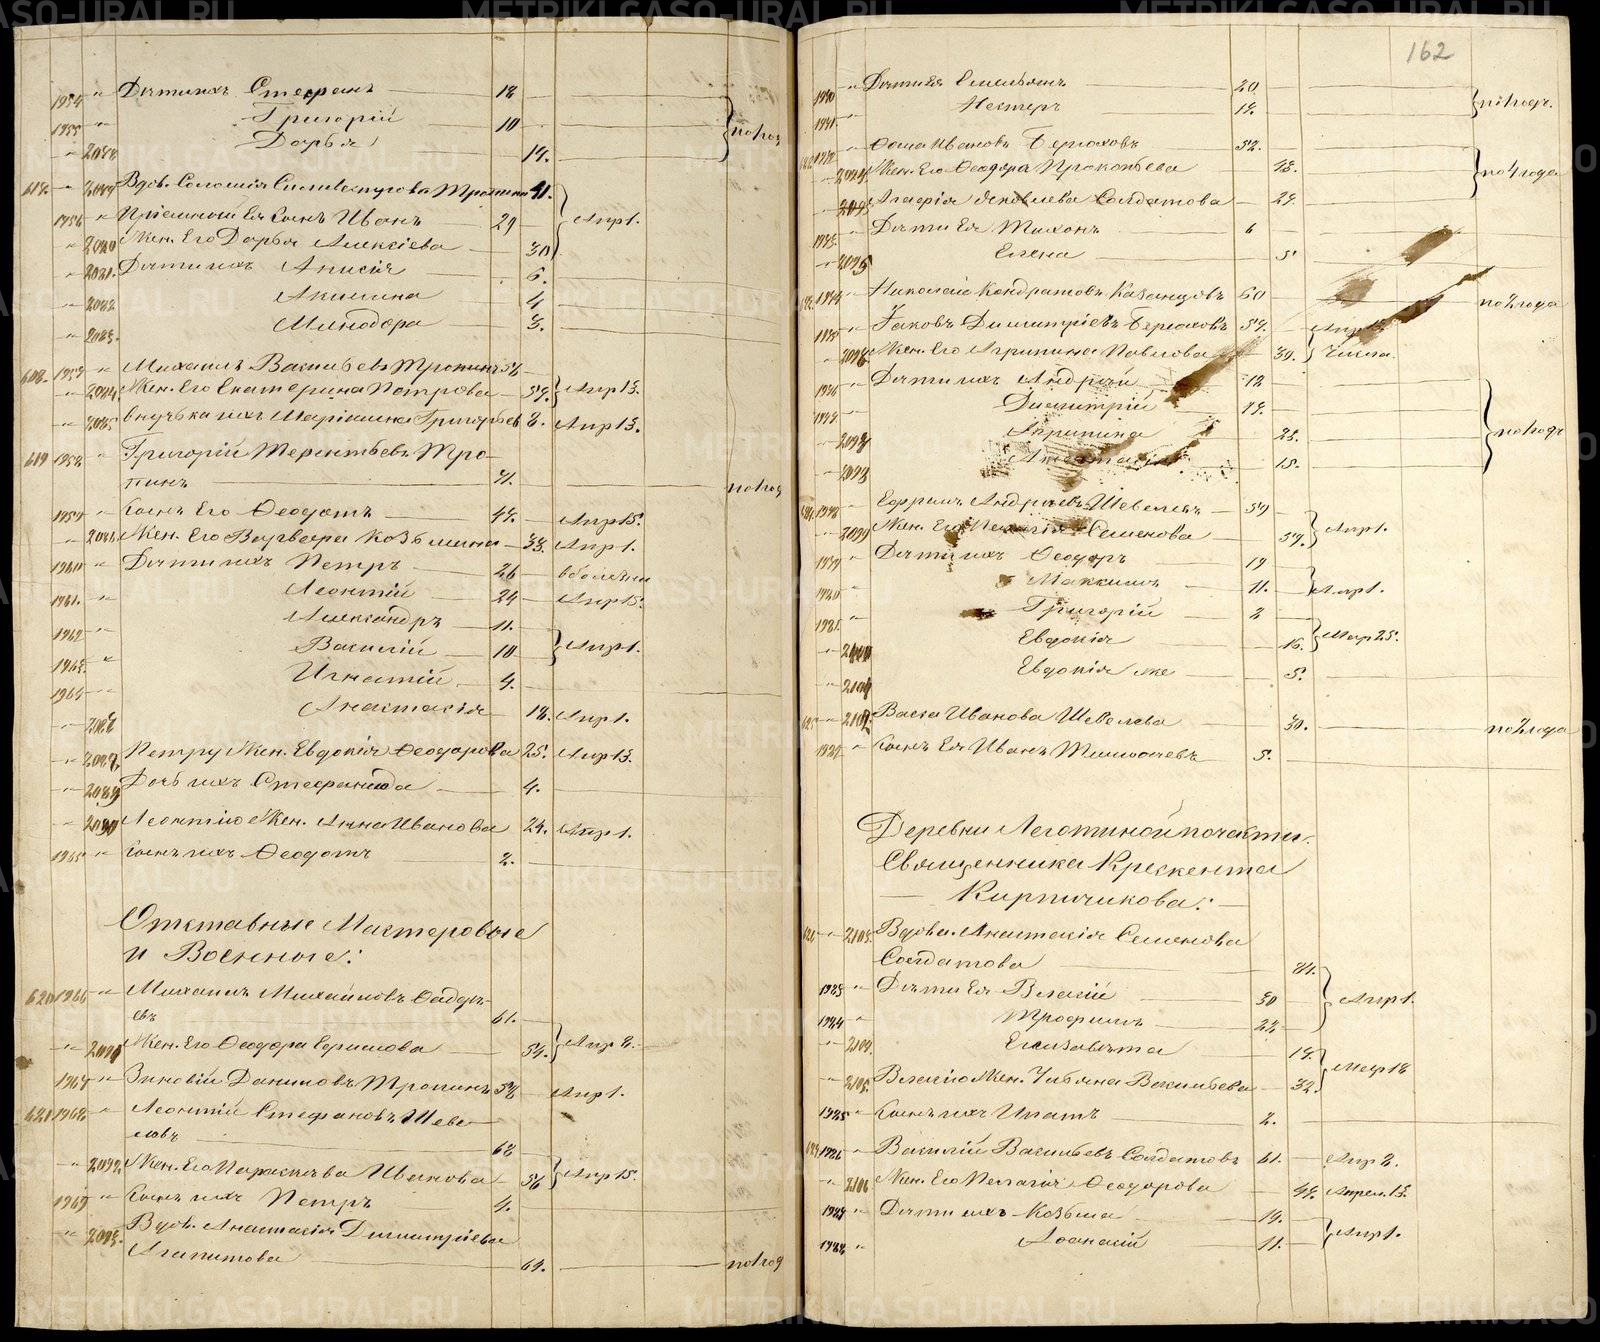 1954 " Дѣти ихъ Стефанъ 12
1955 " Григорій 10
" 2078 Дарья 14.
617. " 2079 Вдов. Соломія Силивестрова Тропина 41.
1956 " Пріемный Ея Сынъ Иванъ 29 Апр 1.
" 2080 Жен. Его Дарья Алексіева 30
" 2081. Дѣти ихъ Анисія 6.
" 2082 Акилина 4
" 2083. Минодора 3.
618. 1957 " Михаилъ Васильевъ Тропинъ 58
" 2084 Жен. Его Екатерина Петрова 59. Апр 13.
" 2085 Внучька ихъ Маріамна Григорьев 8. Апр 13.
619 1958 " Григорій Терентьевъ Тро-
пинъ 71.
1959 " Сынъ Его Ѳеодотъ 47. Апр 15.
" 2086 Жен. Его Варвара Козьмина 33. Апр 1.
1960 " Дѣти ихъ Петръ 26
1961. " Леонтій 24 Апр 15.
1962 " Александръ 11.
1963. " Василій 10 Апр 1.
1964 " Игнатій 4.
" Анастасія 18. Апр 1.
" Петру Жен. Евдокія Ѳеодорова 25. Апр 13.
" 2089 Дочь ихъ Стефанида 4.
" 2090 Леонтію Жен. Анна Иванова 24. Апр 1.
1965 " Сынъ ихъ Ѳеодотъ 2.
Отставные Мастеровые
и Военные:
620 1966 " Михаилъ Михайловъ Ѳаддѣ-
евъ 61.
" 2091 Жен. Его Ѳеодора Ефимова 54. Апр 8.
1967 " Зиновій Даниловъ Тропинъ 58 Апр 1.
621 1968. " Леонтій Стефановъ Шеве-
левъ 68
" 2092 Жен. Его Параскева Иванова 56 Апр 15.
1969 " Сынъ ихъ Петръ 4.
" 2093. Вдов. Анастасія Димитріева
Агапитова 64.
162
1970 " Дѣти Ея Емельянъ 20
1971. " Нестеръ 14.
1972 " Ѳома Ивановъ Берсховъ 52.
" 2094 Жен. Его Ѳеодора Прокопьева 43.
" 2095 Агафія Яковлева Солдатова 24.
1973 " Дѣти Ея Тихонъ 6
" 2096 Елена 5
1974 " Николай Кондратовъ Казанцовъ 60 по 2 года
1975 " Іаковъ Димитріевъ Берсховъ 54.
Жен. Его Агрипина Павлова 30. Числа
1976 " Дѣти ихъ Андрей 18
1977 " Димитрій 14.
Агрипина 23.
Анастасія 15.
1978 " Ефремъ Андреевъ Шевелевъ 59
" 2099 Жен. Его Пелагія Семенова 59. Апр 1.
1979 " Дѣти ихъ Ѳеодоръ 19
1980 " Максимъ 11. Апр 1.
1981. " Григорій 2
" 2100 Евдокія 16. Мар 25.
" 2101 Евдокія же 5.
" 2102. Васса Иванова Шевелева 30. по 2 года
1982 " Сынъ Ея Иванъ Тимоѳеевъ 5.
Деревни Леготиной почасти
Священника Крескента
Кирпичикова:
" 2103. Вдова. Анастасія Семенова
Солдатова 71.
1983 " Дѣти Ея Власій 30 Апр 1.
1984 " Трофимъ 22
" 2104. Елизавета 17.
" 2105. Власію Жен. Ульяна Васильева 32. Мар 18
1985 " Сынъ ихъ Ипатъ 2.
1986 " Василій Васильевъ Солдатовъ 61. Апр 8.
" 2106 Жен. Его Пелагія Ѳеодорова 47. Апрел. 13.
1987 " Дѣти ихъ Козьма 14.
1988 " Аѳанасій 11. Апр 1.
METRIKI.GASO-URAL.RU